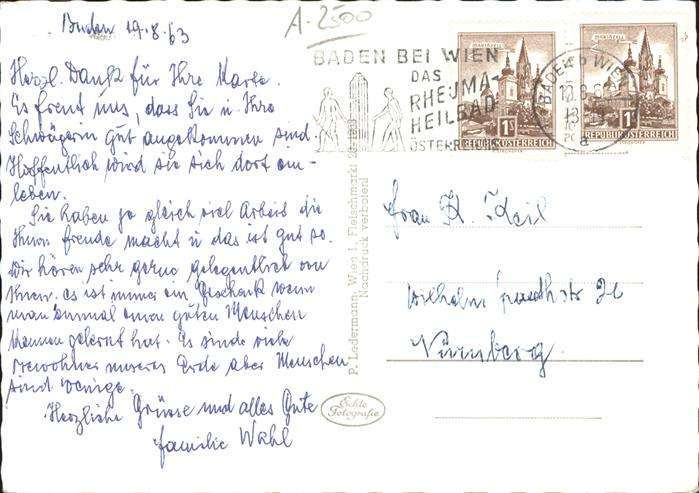 Baden 19.8.63
A-2500
Herzl. Dank für Ihre Karte.
Es freut uns, dass Sie u. Ihre
Schwägerin gut angekommen sind.
Hoffentlich wird sie sich dort ein-
leben.
Sie haben ja gleich viel Arbeit die
Ihnen freude macht u das ist gut so.
Wir hören sehr gerne gelegentlich von
Ihnen. es ist immer ein Geschenk wenn
man einmal einen guten Menschen
kennen gelernt hat. Es sind viele
Bewohner unserer Erde aber Menschen
sind wenige.
Herzliche Grüsse und alles Gute
familie Wahl
P. Ledermann, Wien I, Fleischmarkt
Nachdruck verboten!
Echte
Fotografie
BADEN BEI WIEN
DAS
RHEUMA-
HEILBAD
ÖSTERREICHS
MARIAZELL
1 S
REPUBLIK ÖSTERREICH
BADEN b WIEN
a
MARIAZELL
1 S
REPUBLIK ÖSTERREICH
Frau K. Keil
Wilhelm
Nürnberg